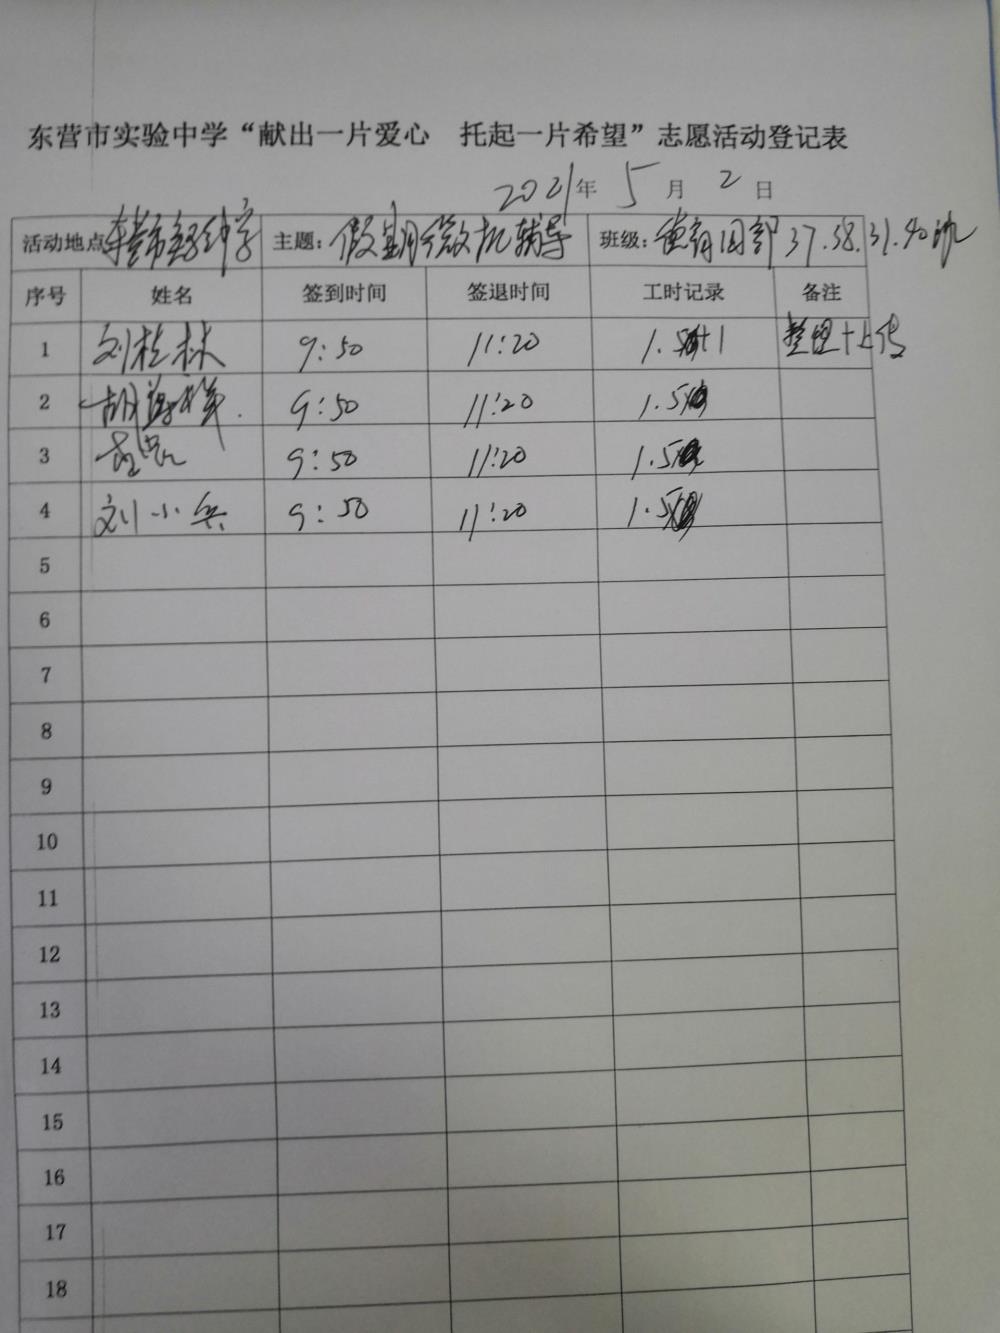 东营市实验中学“献出一片爱心 托起一片希望”志愿活动登记表
2021年 5月 2日
活动地点 东营市实验中学 主题: 假期微机辅导 班级: 德育团部 37.38.39.40班
序号 姓名 签到时间 签退时间 工时记录 备注
1 刘桂林 9:50 11:20 1.5+1 整理+上传
2 胡 9:50 11:20 1.5
3 9:50 11:20 1.5
4 刘小兵 9:50 11:20 1.5
5
6
7
8
9
10
11
12
13
14
15
16
17
18